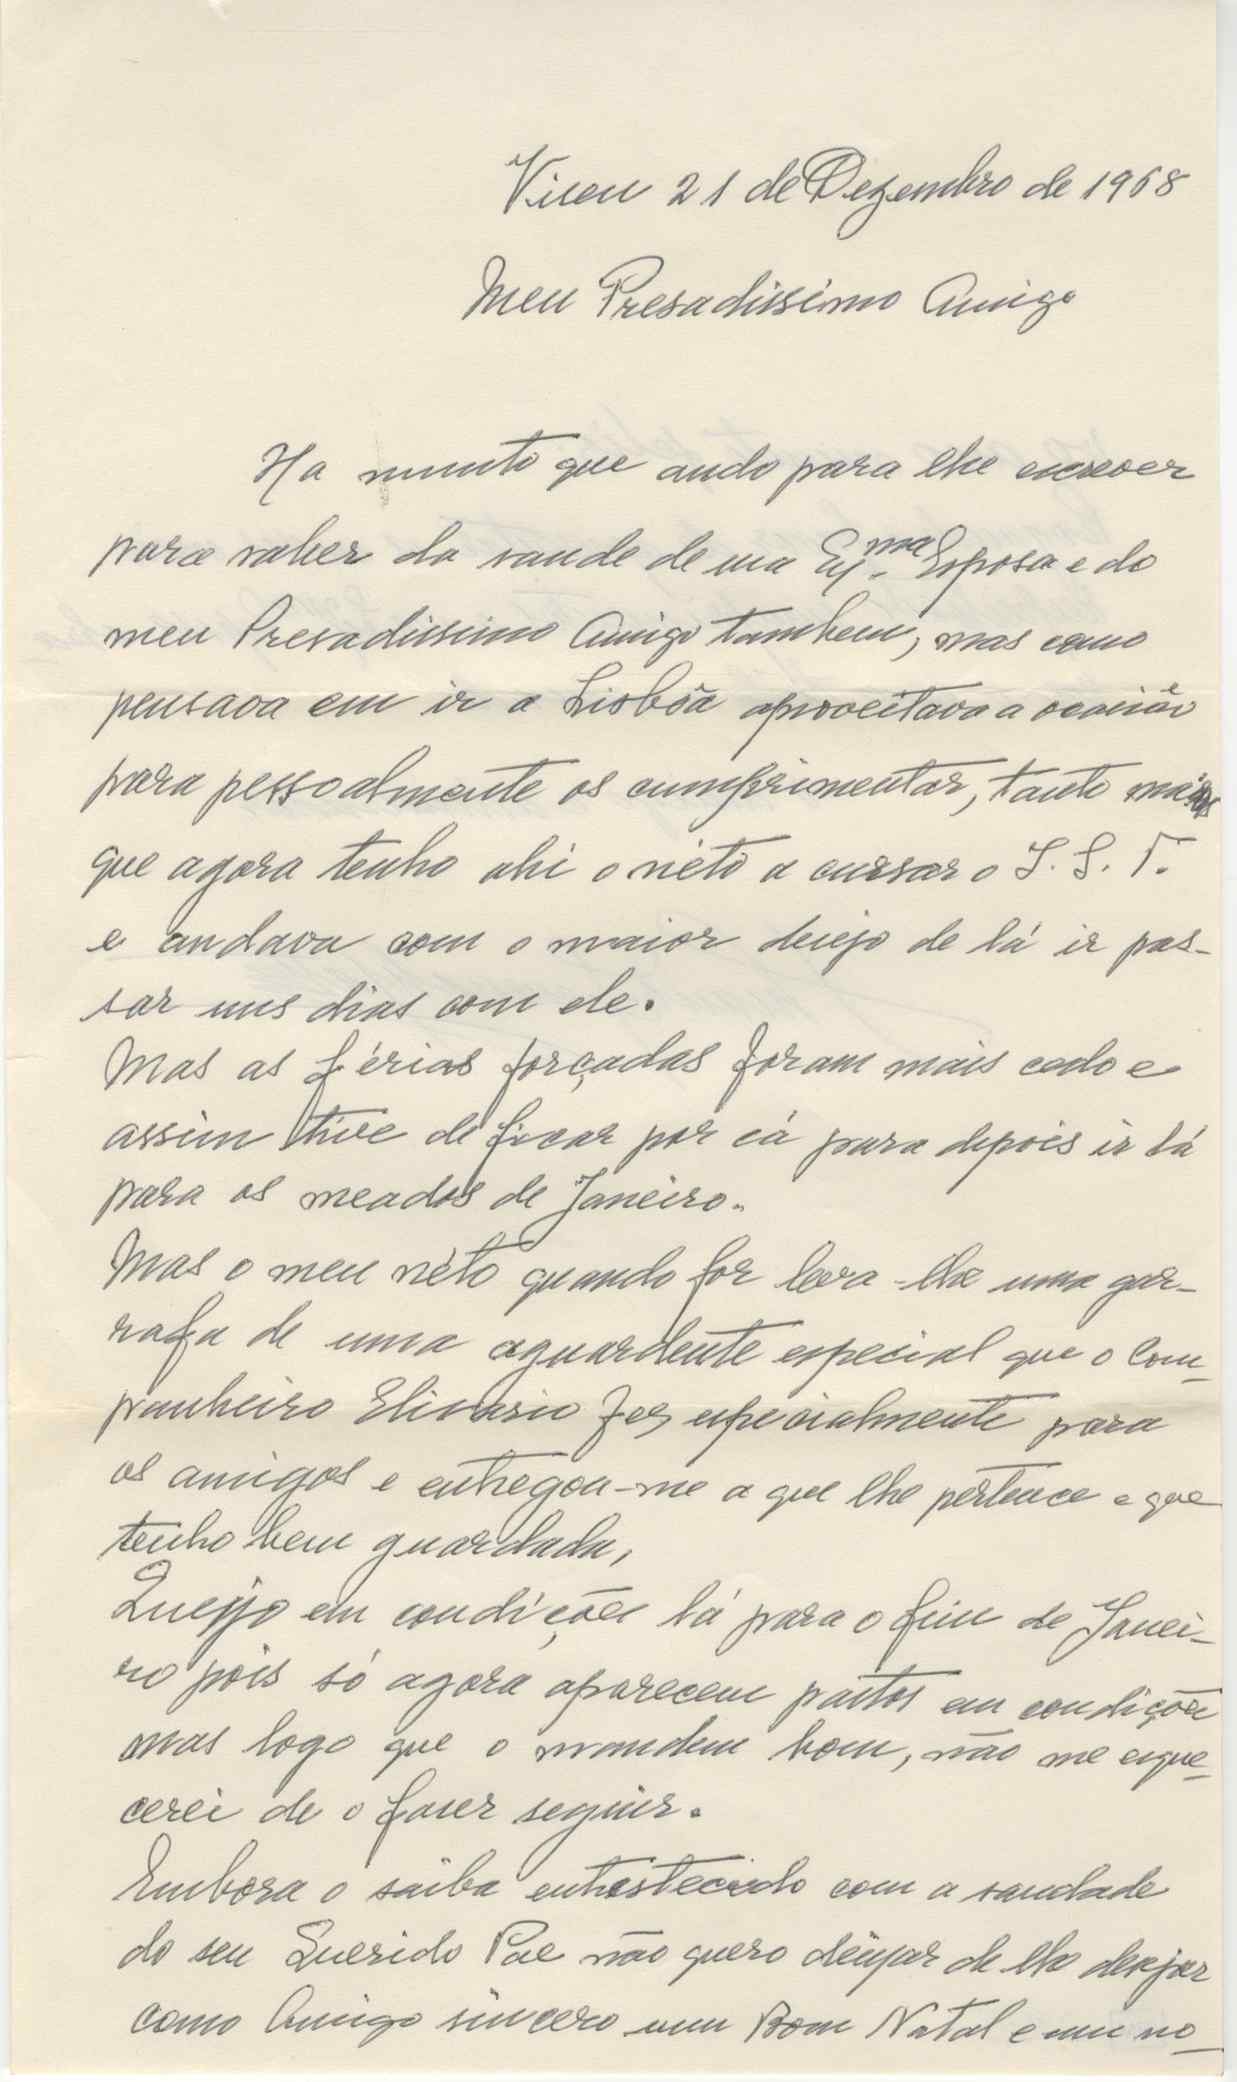 Viseu 21 de Dezembro de 1968
Meu Presadissimo Amigo
Ha muito que ando para lhe escrever
para saber da saude de sua Ex.ma Esposa e do
meu Presadissimo Amigo tambem, mas como
pensava em ir a Lisbôa aproveitava a ocasião
para pessoalmente os cumprimentar, tanto mais
que agora tenho ahi o néto a cursar o I. S. T.
e andava com o maior desejo de lá ir pas-
sar uns dias com ele.
Mas as férias forçadas foram mais cedo e
assim tive de ficar por cá para depois ir lá
para os meados de Janeiro.
Mas o meu néto quando for leva-lhe uma gar-
rafa de uma aguardente especial que o com-
panheiro fez especialmente para
os amigos e entregou-me a que lhe pertence e que
tenho bem guardada,
Queijo em condições lá para o fim de Janei-
ro pois só agora aparecem pastos em condições
mas logo que o mandem bom, não me esque-
cerei de o faser seguir.
Embora o saiba entristecido com a saudade
do seu Querido Pae não quero deixar de lhe desejar
como Amigo sincero um Bom Natal e um no-